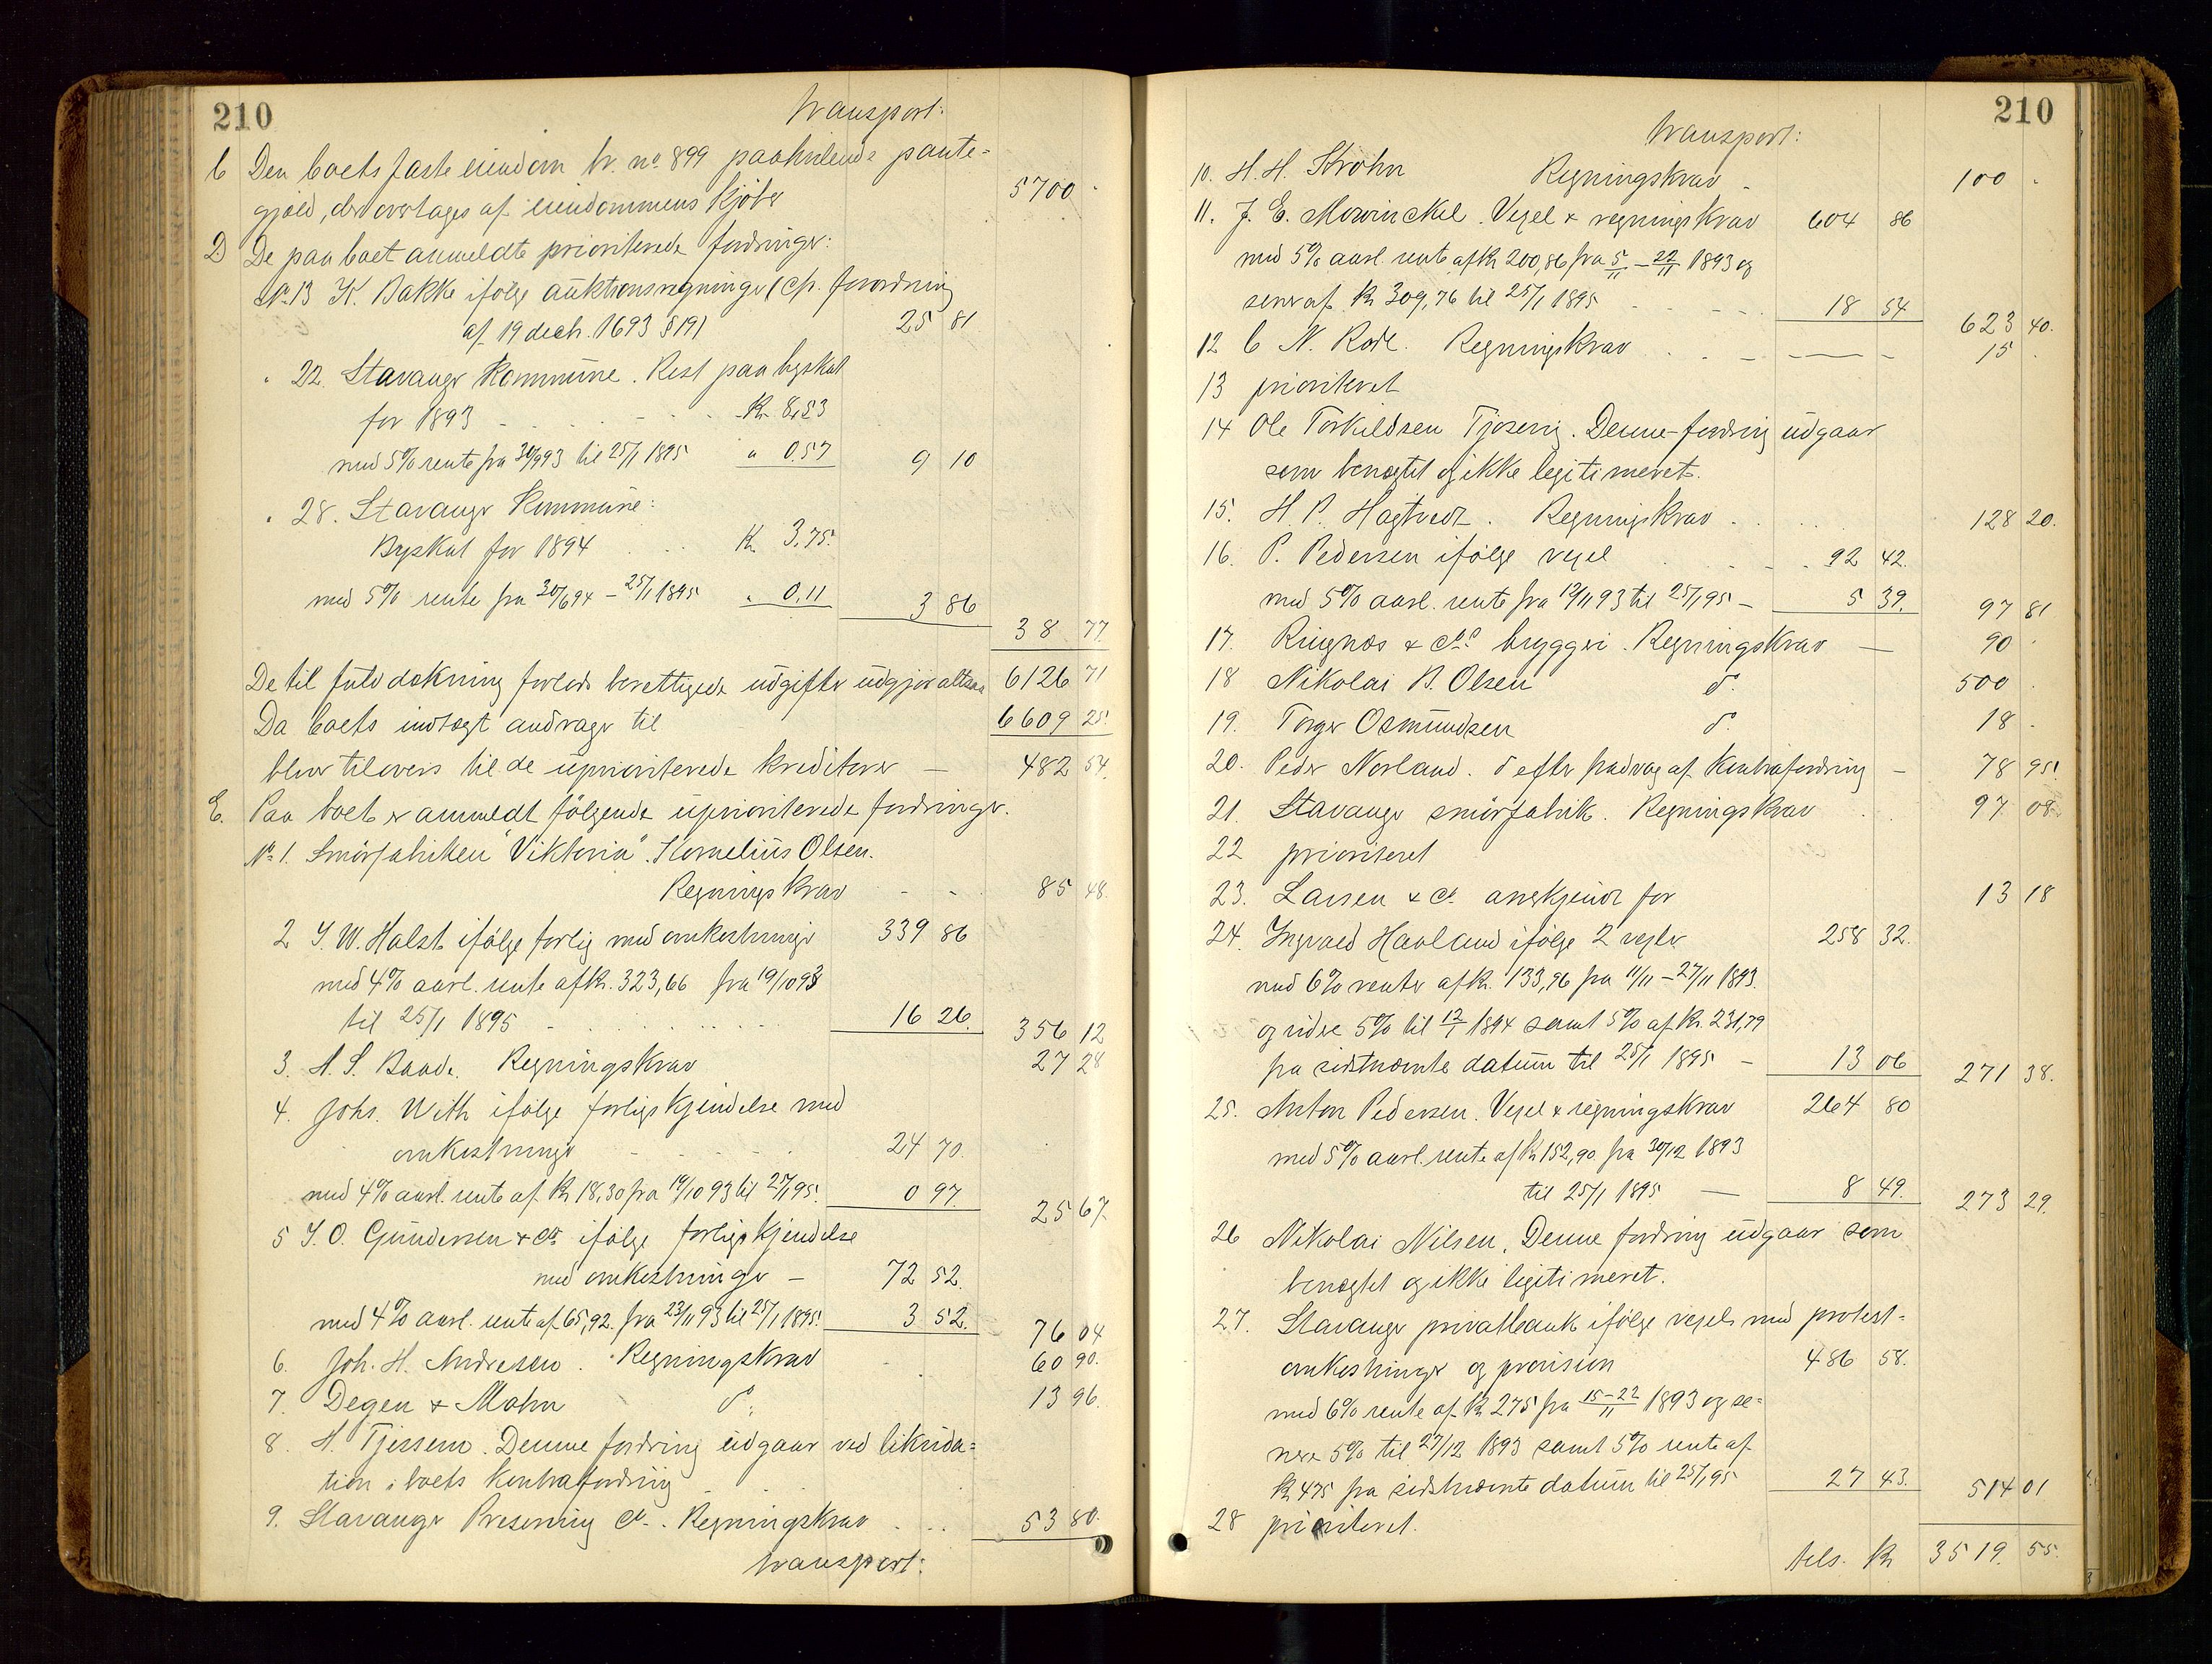 210
transport:
C Den boets faste eiendom br. no 899 paahvilende pante-
gjæld, der overtages af eiendommens kjøber 5700 -
D De paa boet anmeldte prioriterede fordringer:
No 13 K. Bakke ifølge auktionsregninger (cfr. forordning
af 19 decbr. 1693 § 19) 25 81
" 22. Stavanger kommune. Rest paa byskat
for 1893 - Kr. 8,53
med 5% rente fra 30/9 93 til 25/1 1895 " 0.57 9 10
" 28. Stavanger kommune:
Byskat for 1894 Kr. 3,75.
med 5% rente fra 30/6 94 - 25/1 1895 " 0,11 3 86
38 77.
De til fuld dækning forlods berettigede udgifter udgjør altsaa 6126 71
Da boets indtægt andrager til 6609 25.
bliver tilovers til de uprioriterede kreditorer - 482 54.
E. Paa boet er anmeldt følgende uprioriterede fordringer.
No 1. Smørfabriken "Viktoria". Kornelius Olsen.
Regningskrav - - 85 48.
2 J. W. Halst ifølge forlig med omkostninger 339 86
med 4% aarl. rente af kr. 323,66 fra 19/10 93
til 25/1 1895 - 16 26. 356 12
3. A. S. Baade. Regningskrav 27 28
4. Johs. With ifølge forligskjendelse med
omkostninger 24 70.
med 4% aarl. rente af kr 18,30 fra 19/10 93 til 25/1 95. 0 97. 25 67.
5 J. O. Gundersen & Co ifølge forligskjendelse
med omkostninger - 72 52.
med 4% aarl. rente af 65,92. fra 23/11 93 til 25/1 1895. 3 52. 76 04
6. Joh. H. Andresen. Regningskrav 60 90.
7. Degen & Mohn do. 13 96.
8. A. Tjessem. Denne fordring udgaar ved likvida=
tion i boets kontrafordring
9. Stavanger Presenning Co. Regningskrav 53 80.
transport:
210
transport:
10. H. H. Krohn Regningskrav - 100 -
11. J. E. Mowinckel. Vexel & regningskrav 604 86
med 5% aarl. rente af kr 200,86 fra 5/11 - 22/11 1893 og
senere af kr 309,76 til 25/1 1895 18 54 623 40.
12 C N. Rode. Regningskrav - 15 -
13 prioriteret
14 Ole Torkildsen Tjosevig. Denne fordring udgaar
som benægtet og ikke legitimeret.
15. H. P. Hagtvedt. Regningskrav 128 20.
16. P. Pedersen ifølge vexel 92 42.
med 5% aarl. rente fra 19/11 93 til 25/1 95 - 5 39. 97 81
17. Ringnæs & Co.s bryggeri. Regningskrav - 90 -
18 Nikolai B. Olsen do. 500 -
19. Torger Osmundsen do. 18 -
20. Peder Norland. do efter fradrag af kontrafordring - 78 95.
21. Stavanger smørfabrik. Regningskrav 97 08
22 prioriteret
23. Larsen & Co anerkjendt for 13 18
24. Ingvald Haaland ifølge 2 vexler 258 32.
med 6% renter af kr. 133,96 fra 11/11 - 27/11 1893.
og videre 5% til 12/1 1894 samt 5% af kr. 231,79
fra sidstnævnte datum til 25/1 1895 - 13 06 271 38.
25. Anton Pedersen. Vexel & regningskrav 264 80
med 5% aarl. rente af kr 152,90. fra 30/12 1893
til 25/1 1895 - 8 49. 273 29.
26 Nikolai Nilsen. Denne fordring udgaar som
benægtet og ikke legitimeret.
27. Stavanger privatbank ifølge vexels med protest-
omkostninger og provision 486 58.
med 6% rente af kr 275 fra 15-22/11 1893 og se=
nere 5% til 27/12 1893 samt 5% rente af
kr 475 fra sidstnævnte datum til 25/1 95 27 43. 514 01
28 prioriteret.
tils. kr 3519. 55.